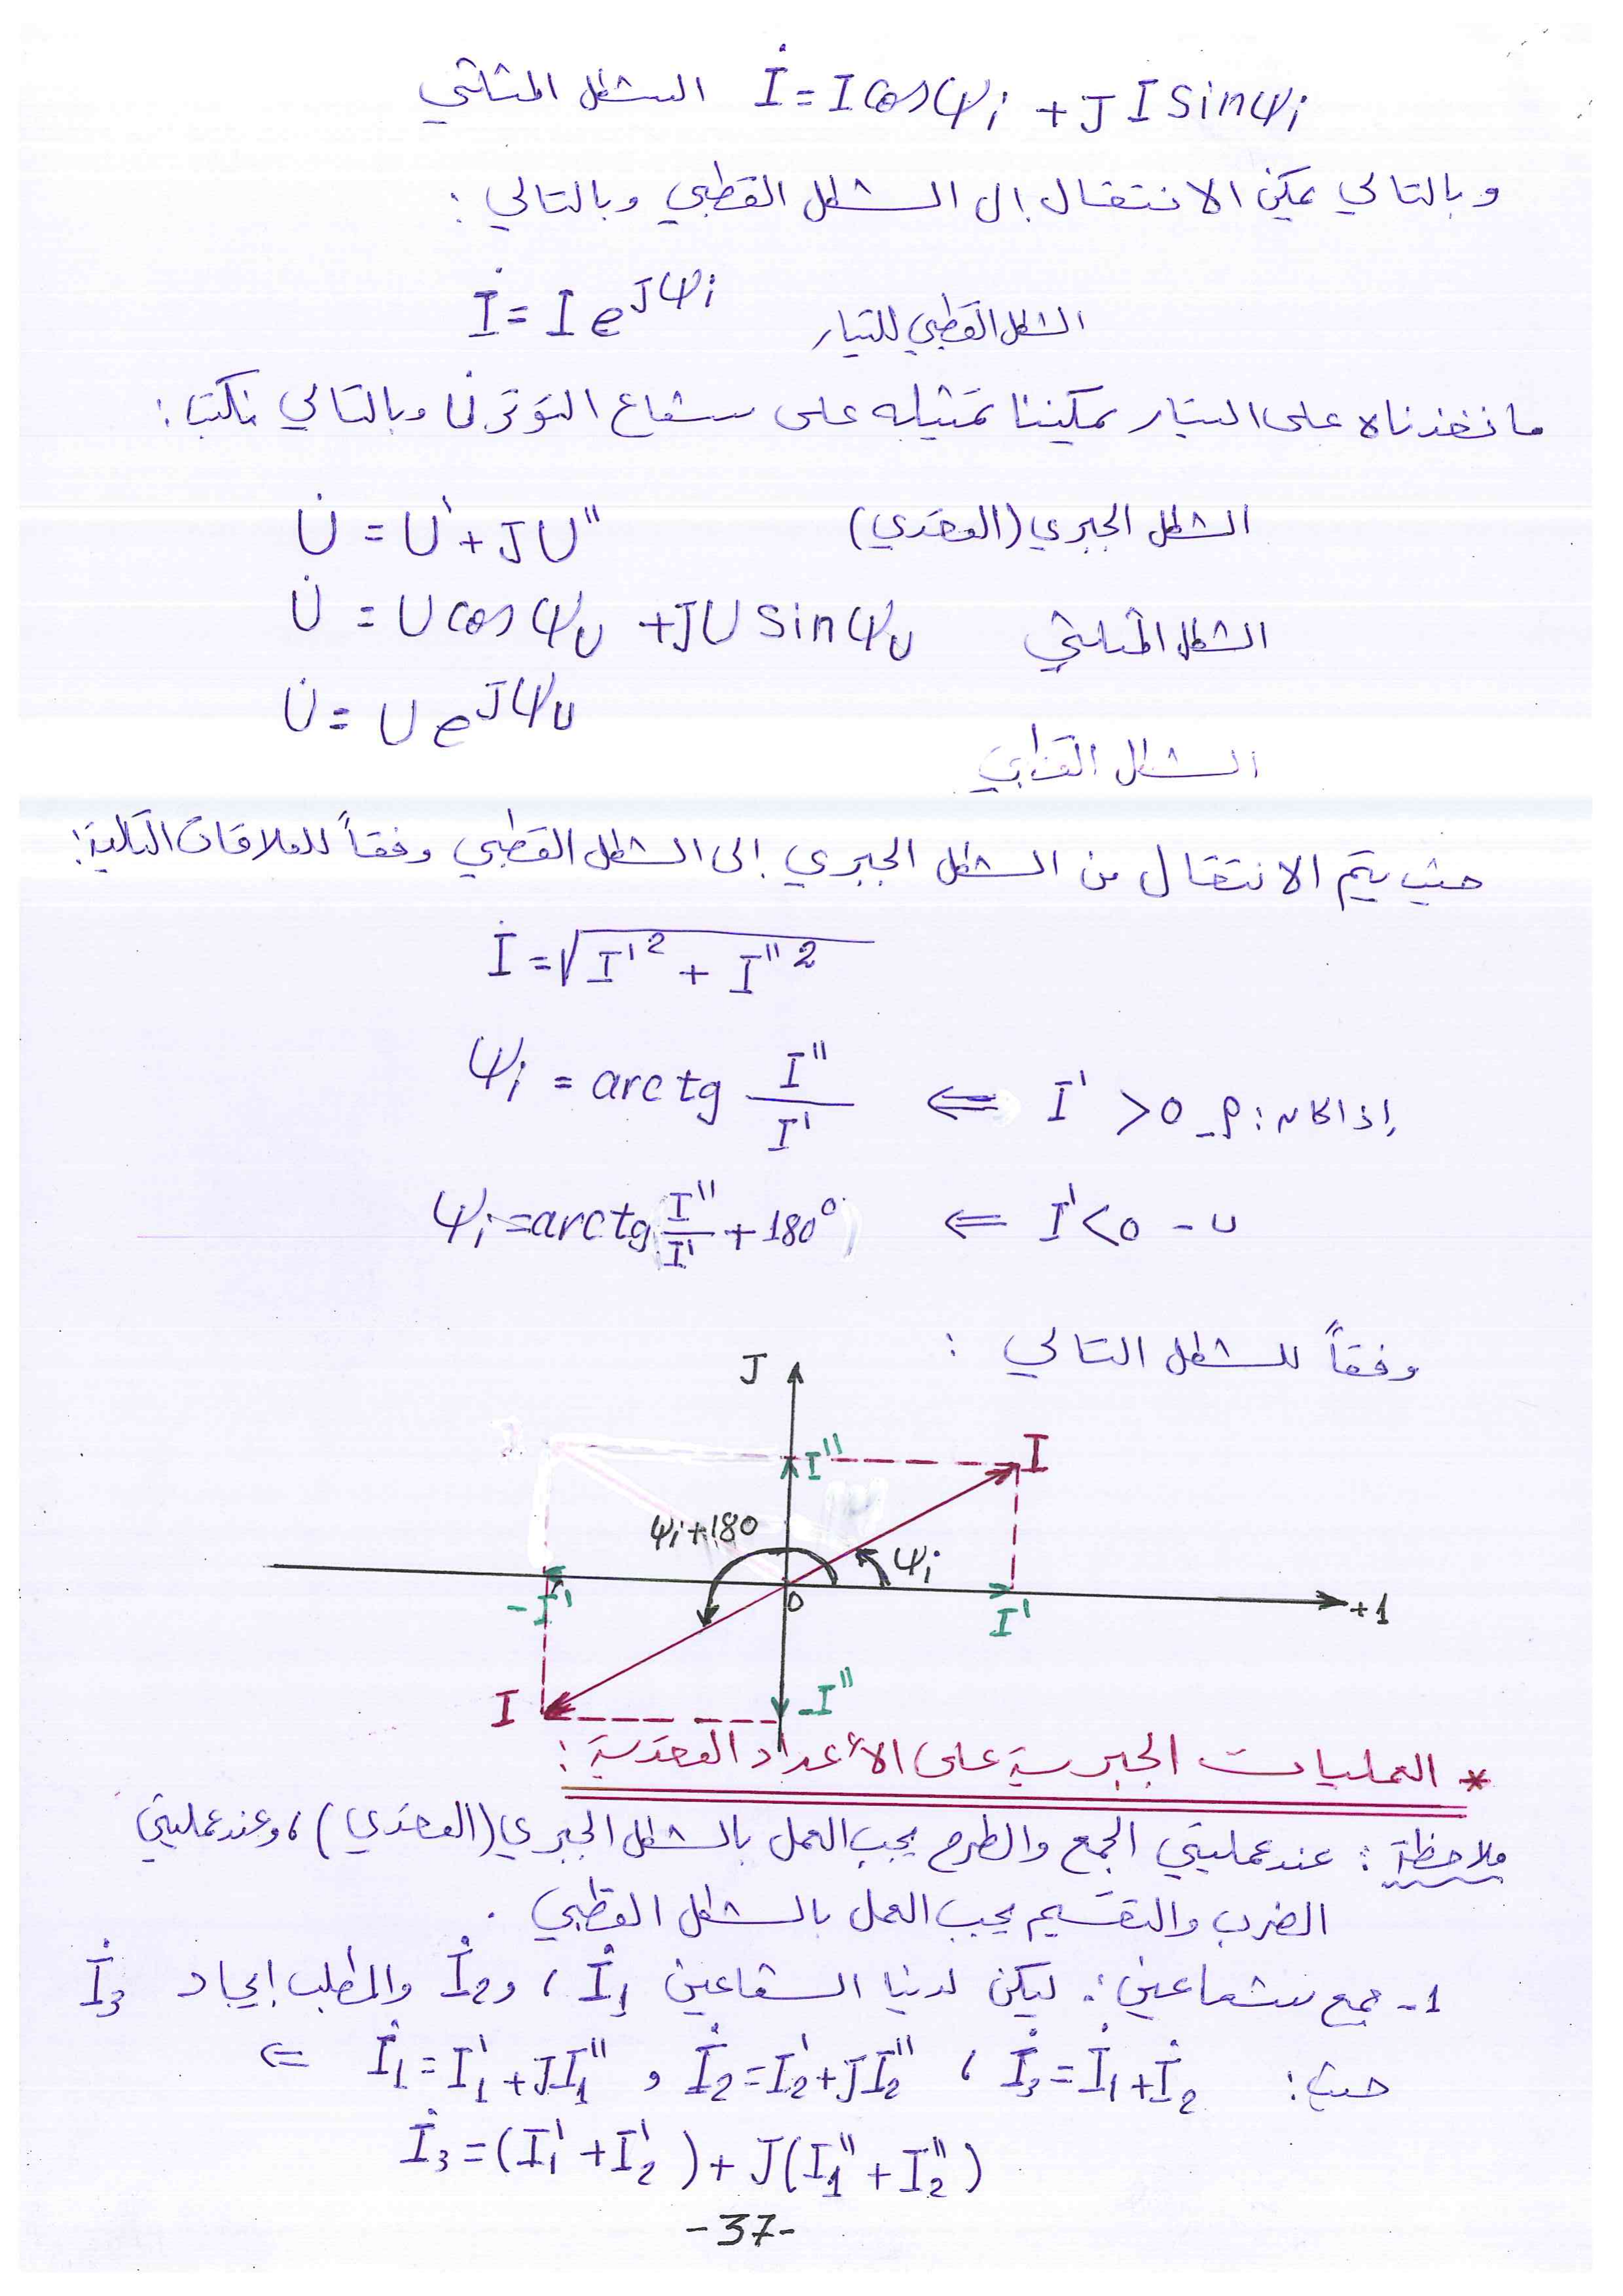 الشكل المثلثي İ = I cosψi + J I sinψi
وبالتالي يمكن الانتقال إلى الشكل القطبي وبالتالي :
İ = I e^Jψi الشكل القطبي للتيار
ما نفذناه على التيار يمكننا تمثيله على شعاع التوتر U̇ وبالتالي نكتب :
U̇ = U' + J U'' الشكل الجبري (العقدي)
U̇ = U cosψu + J U sinψu الشكل المثلثي
U̇ = U e^Jψu
الشكل القطبي
حيث يتم الانتقال من الشكل الجبري إلى الشكل القطبي وفقاً للعلاقات التالية :
İ = √(I'² + I''²)
إذا كان : أ- I' > 0 ⇐ ψi = arctg I''/I'
ب - I' < 0 ⇐ ψi = arctg I''/I' + 180°
وفقاً للشكل التالي :
J
I'' I
ψi+180
ψi
-I' 0 I' +1
I -I''
* العمليات الجبرية على الأعداد العقدية :
ملاحظة : عند عمليتي الجمع والطرح يجب العمل بالشكل الجبري (العقدي) ، وعند عمليتي
الضرب والتقسيم يجب العمل بالشكل القطبي .
1- جمع شعاعين : ليكن لدينا الشعاعين İ1 ، و İ2 والمطلب إيجاد İ3
حيث : İ3 = İ1 + İ2 ، İ2 = I2' + J I2'' و İ1 = I1' + J I1'' ⇐
İ3 = (I1' + I2') + J(I1'' + I2'')
-37-